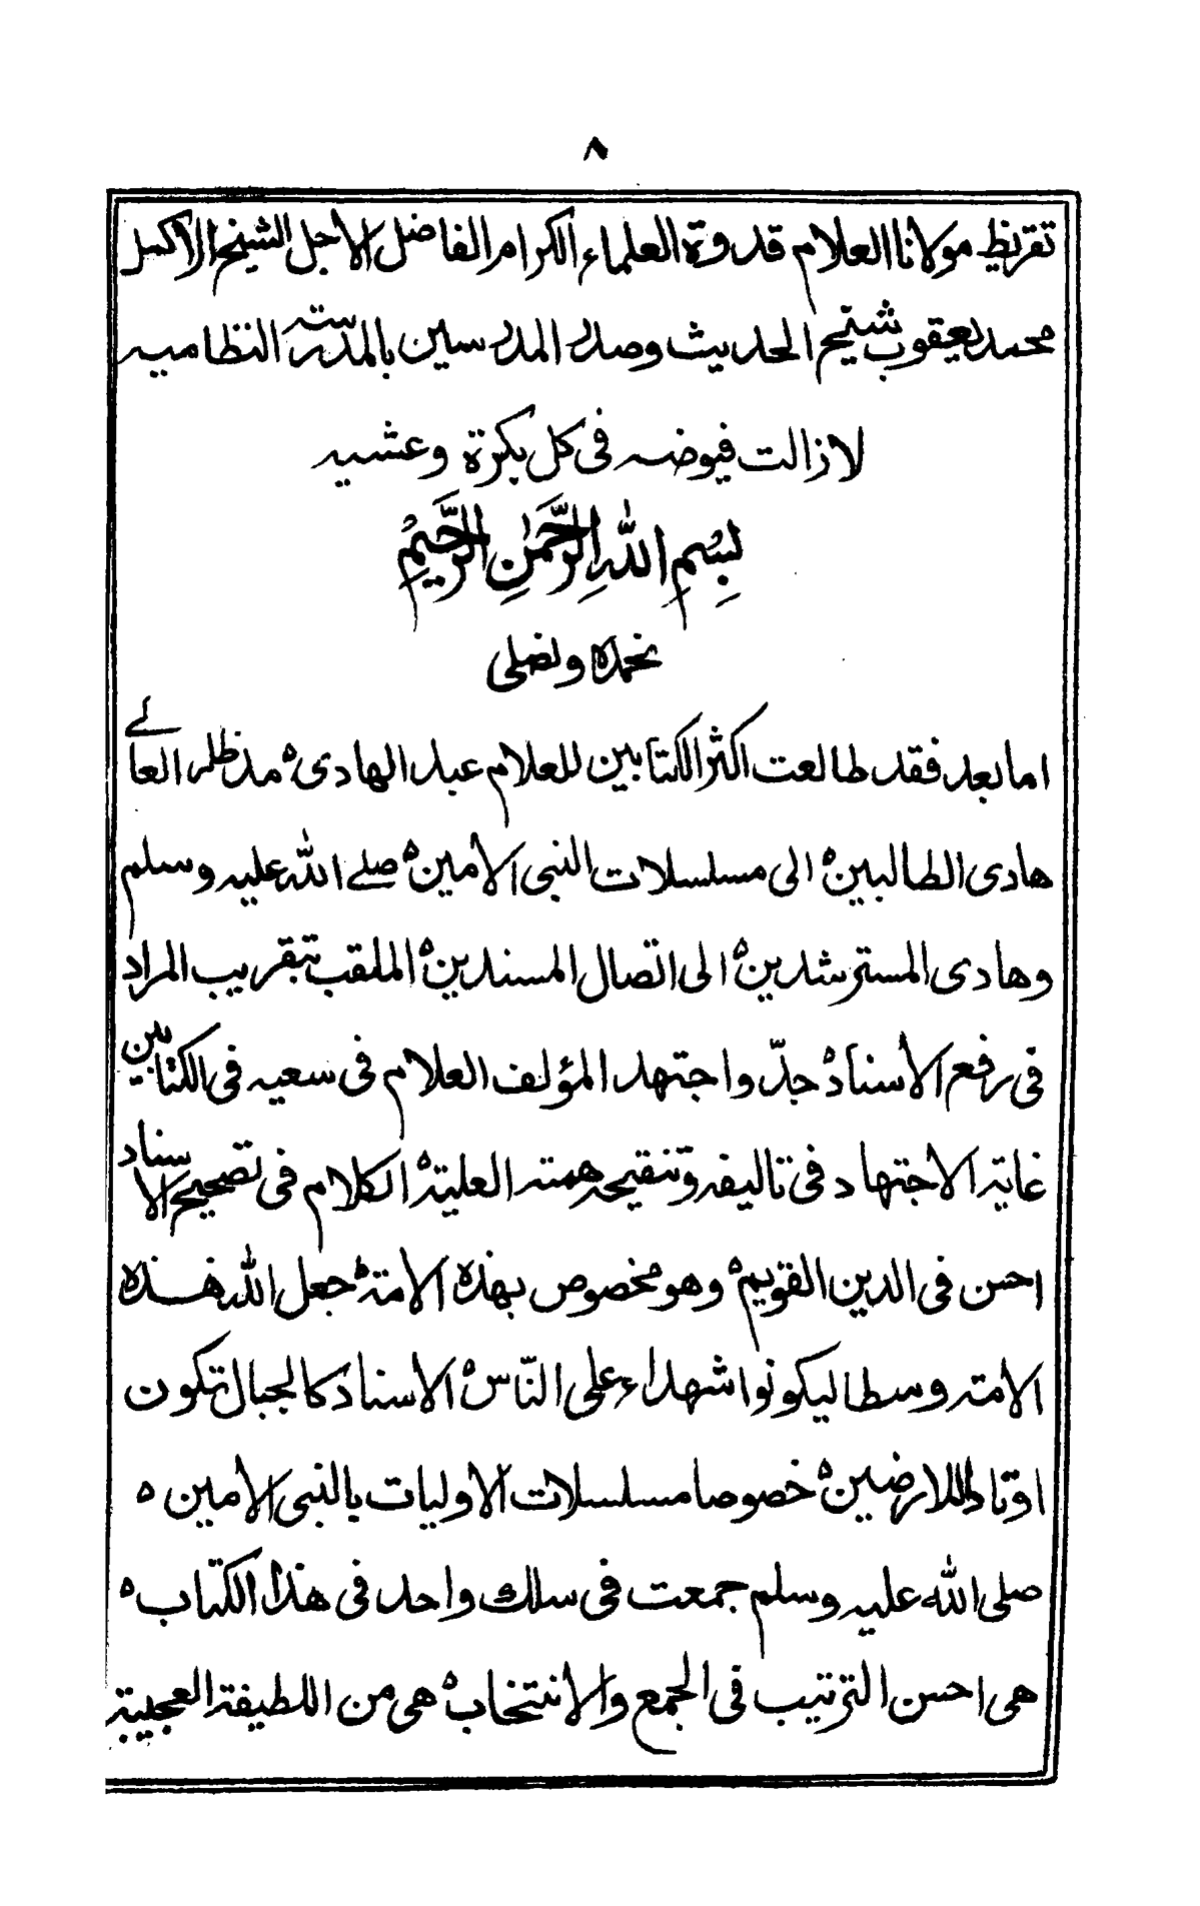 ٨
تقريظ مولانا العلام قدوة العلماء الكرام الفاضل الاجل الشيخ الاكمل
محمد يعقوب شيخ الحديث وصدر المدرسين بالمدرسة النظاميه
لازالت فيوضه فى كل بكرة وعشيه
بِسْمِ اللّٰهِ الرَّحْمٰنِ الرَّحِيْمِ
نحمده ونصلى
اما بعد فقد طالعت اكثر الكتابين للعلام عبد الهادى ه مد ظله العالے
هادى الطالبين ه الى مسلسلات النبى الامين ه صلے الله عليه وسلم
وهادى المسترشدين ه الى اتصال المسندين ه الملقب بتقريب المراد
فى رفع الأسناد ه جدّ واجتهد المؤلف العلام فى سعيه فى الكتابين
غاية الاجتهاد فى تاليفه وتنقيحه همته العلية ه الكلام فى تصحيح الاسناد
احسن فى الدين القويم ه وهو مخصوص بهذه الامة ه جعل الله هذه
الامته وسطا ليكونوا شهداء على النّاس ه الاسناد كالجبال تكون
اوتادا للارضين ه خصوصا مسلسلات الاوليات بالنبى الامين ه
صلى الله عليه وسلم جمعت فى سلك واحد فى هذا الكتاب ه
هى احسن الترتيب فى الجمع والانتخاب ه هى من اللطيفة العجيبة